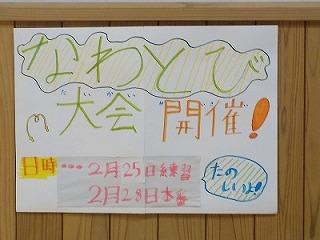 なわとび
たいかい かいさい
大会 開催!
日時…2月25日練習
2月28日本番
たの
しいよ!